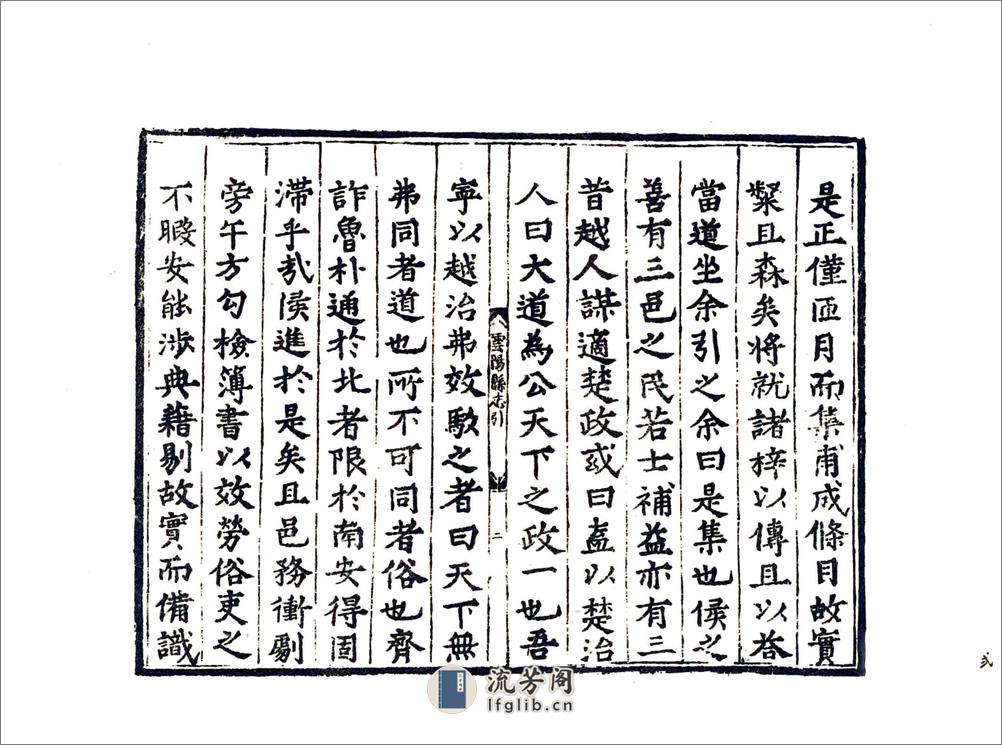 是正僅匝月而集甫成條目故實
粲且森矣將就諸梓以傳且以咨
當道坐余引之余曰是集也侯之
善有三邑之民若士補益亦有三
昔越人謀適楚政或曰盍以楚治
人曰大道為公天下之政一也吾
雲陽縣志引
二
寧以越治弗效駭之者曰天下無
弗同者道也所不可同者俗也齊
詐魯朴通於北者限於南安得固
滯乎哉侯進於是矣且邑務衝劇
旁午方勾檢簿書以效勞俗吏之
不暇安能涉典藉剔故實而備識
流芳阁
lfglib.cn